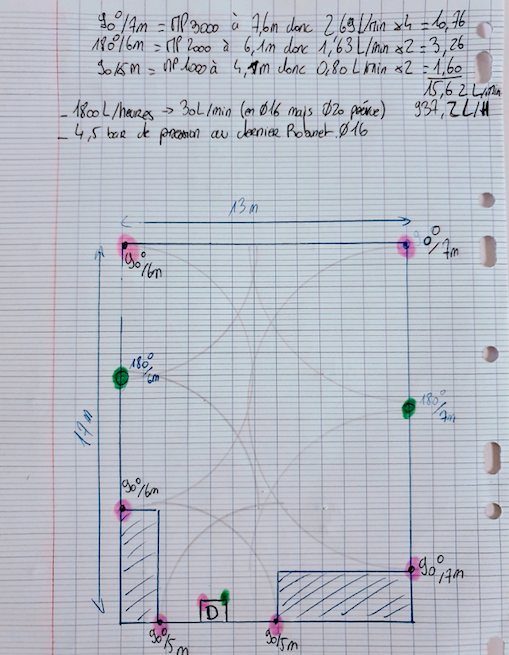 90°/7m = MP3000 à 7,6m donc 2,69L/min x4 = 10,76
180°/6m = MP2000 à 6,1m donc 1,63L/min x2 = 3,26
90/5m = MP1000 à 4,1m donc 0,80L/min x2 = 1,60
15,62 L/min
- 1800L/heures → 30L/min (en Ø16 mais Ø20 prévue) 937,2L/H
- 4,5 bar de pression au dernier Robinet Ø16
13m
90°/6m
90°/7m
180°/6m
180°/7m
17m
90°/6m
90°/7m
D
90°/5m
90/5m